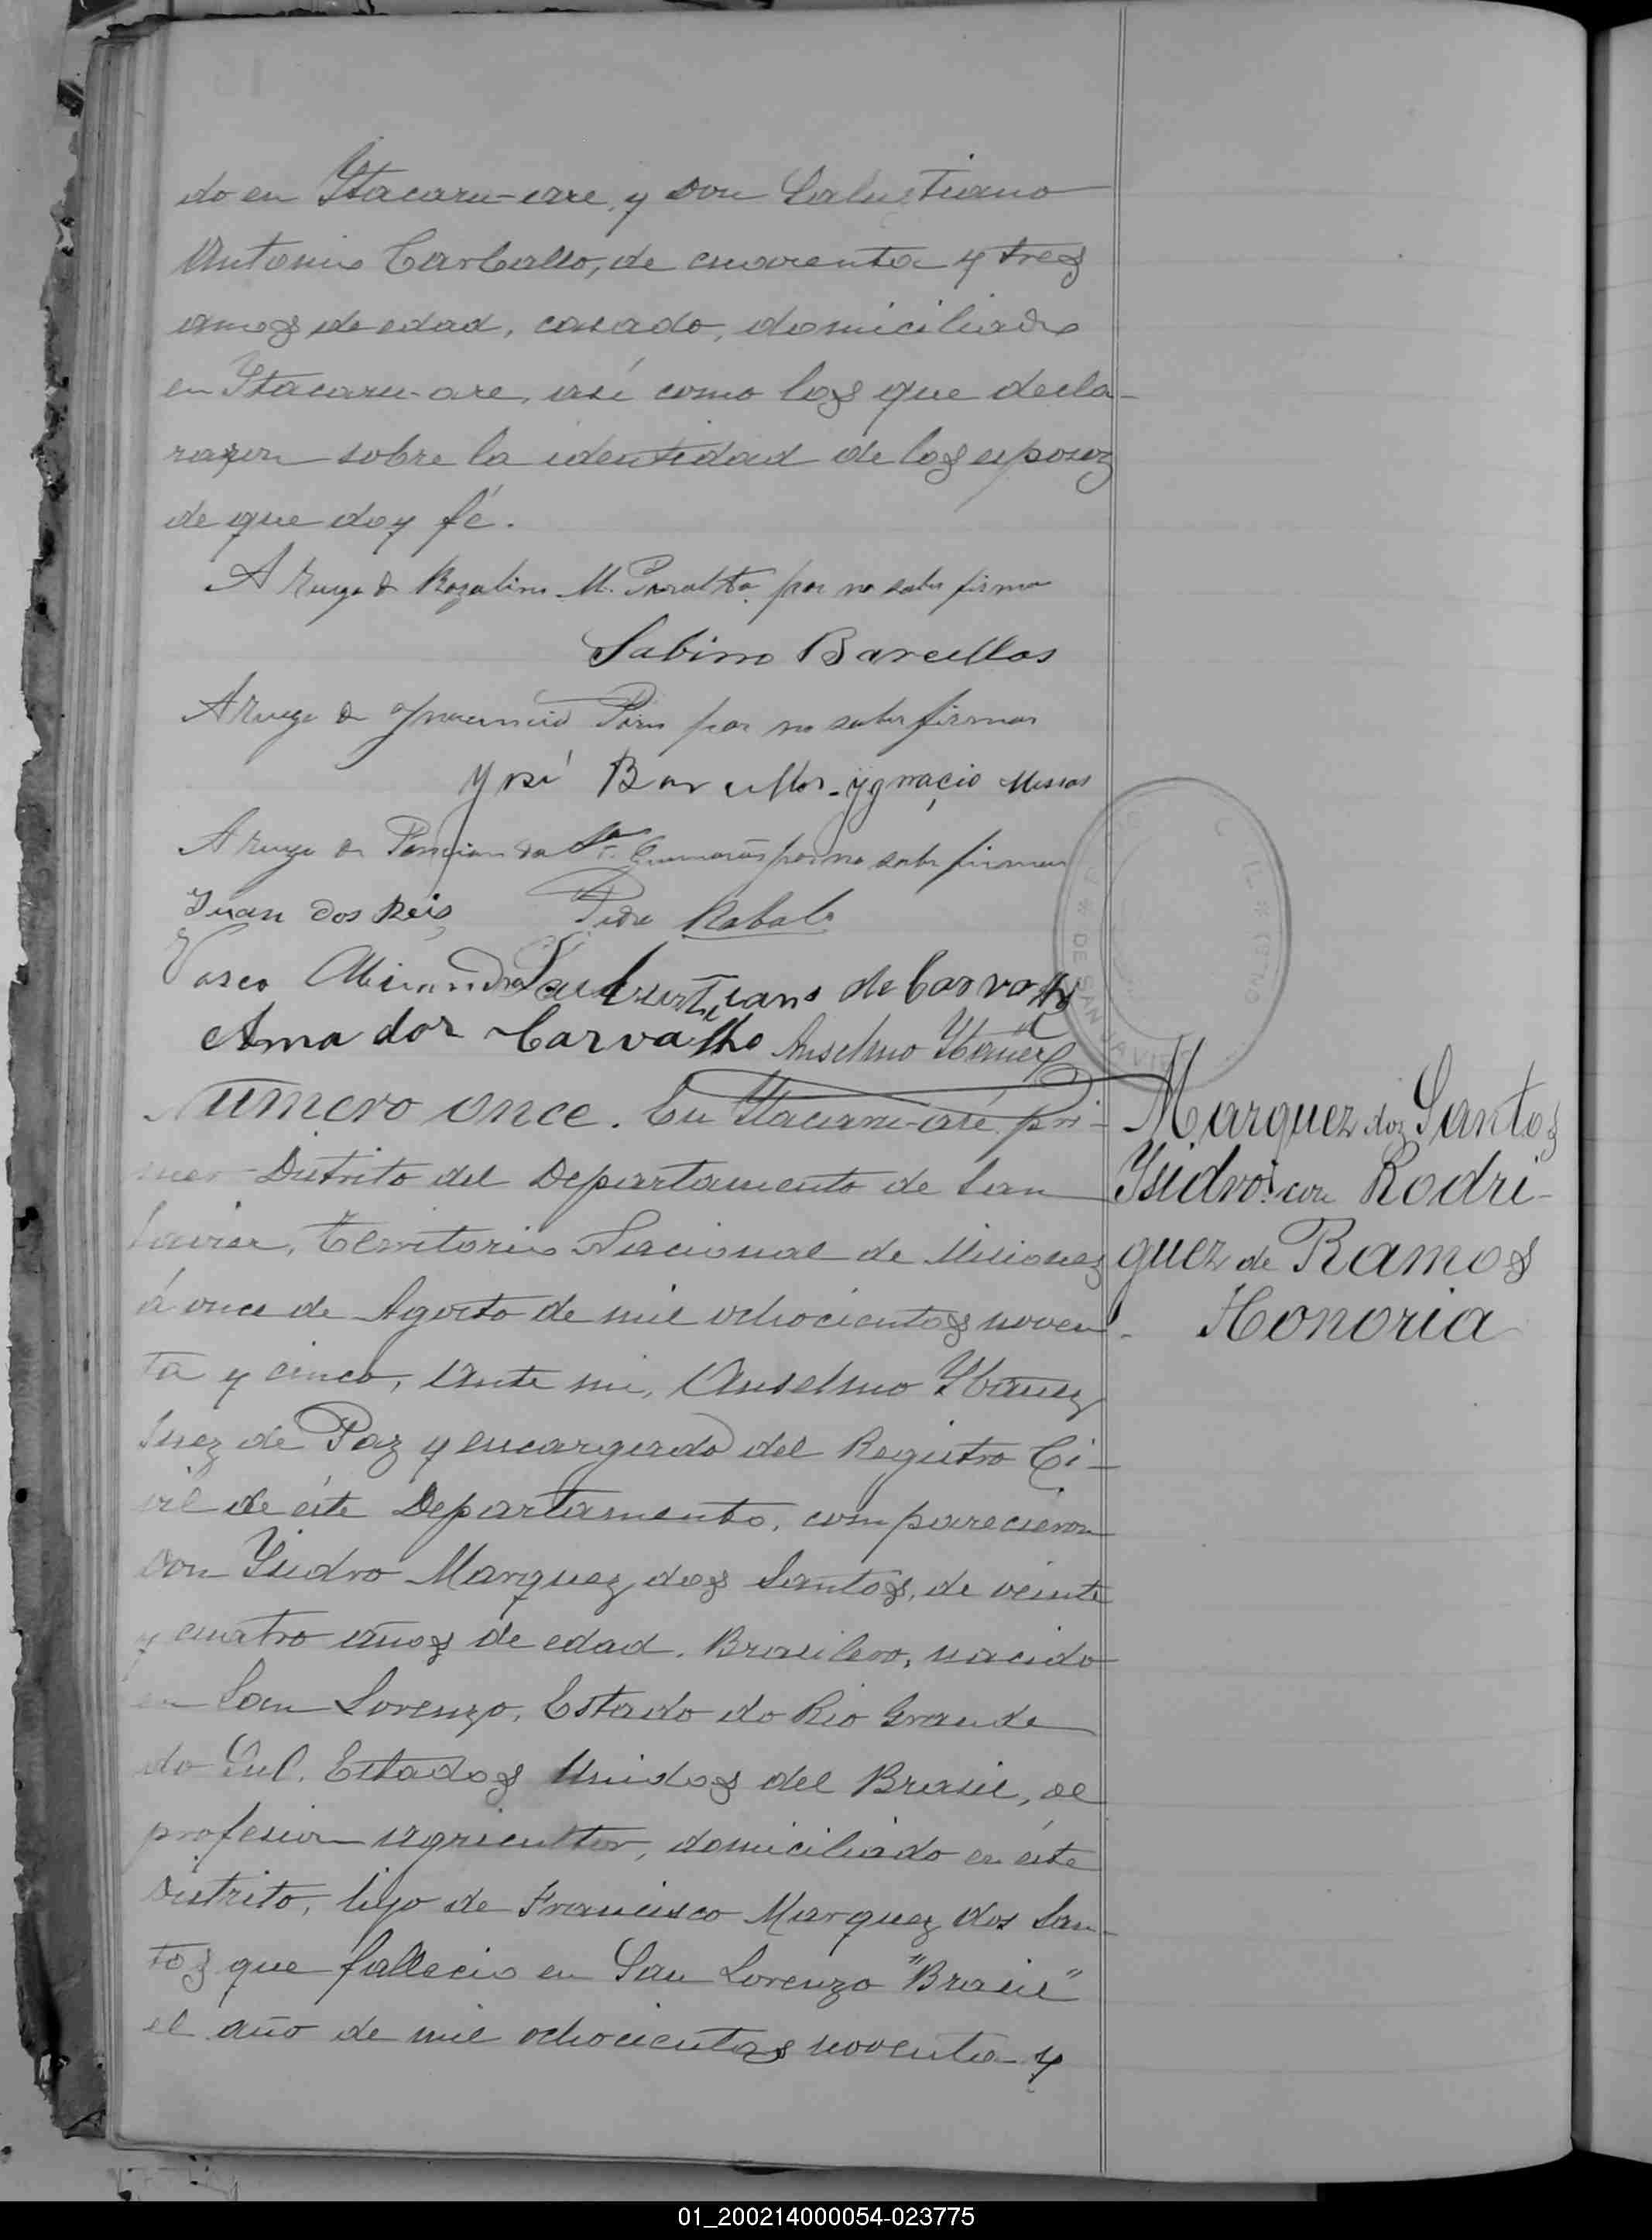 do en Ytacaru-are, y Don Salustiano
Antonio Carballo, de cuarenta y tres
anos de edad, casado, domiciliado
en Ytacaru-are, asi como los que decla-
raron sobre la identidad de los esposos
de que doy fé.
A ruego de Rozalino M. Peralta por no saber firmar
Sabino Barcellos
A ruego de Ynocencio Pires por no saber firmar
José Barcellos - Ygnacio
A ruego de da por no saber firmar
Juan dos Reis Pedro
Vasco Salustiano de Carvalho
Amador Carvalho Anselmo Ybañez
Numero once. En Ytacaru-aré, pri-
mer Distrito del Departamento de San
Javier, Territorio Nacional de Misiones
á once de Agosto de mil ochocientos noven-
ta y cinco, ante mi, Anselmo Ybañez
Juez de Paz y encargado del Registro Ci-
vil de éste Departamento, comparecieron
Don Ysidro Marquez dos Santos, de veinte
y cuatro años de edad, Brasilero, nacido
en San Lorenzo, Estado do Rio Grande
do Sul, Estados Unidos del Brasil, de
profesion agricultor, domiciliado en éste
Distrito, hijo de Francisco Marquez dos San-
tos que fallecio en San Lorenzo "Brasil"
el año de mil ochocientos noventa y
Marquez dos Santos
Ysidro con Rodri-
guez de Ramos
Honoria
DE SAN JAVIER
01_200214000054-023775